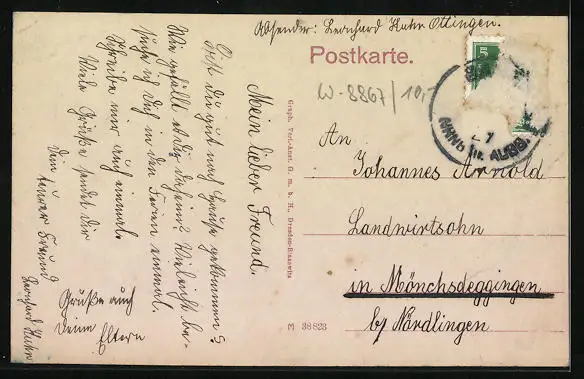 Absender: Leonhard Kuhn Ottingen.
Postkarte.
W-8867/10,-
5
An
Johannes Arnold
Landwirtsohn
in Mönchsdeggingen
b/ Nördlingen
Graph. Verl.-Anst. G. m. b. H., Dresden-Blasewitz
E 38823
Mein lieber Freund.
Bist du gut nach Hause gekommen?
Wie gefällt es dir daheim? Vieleicht be-
suche ich Dich in den Ferien einmal.
Schreibe mir auch einmal
Viele Grüße sendet dir
Dein
treuer Freund
Leonhard Kuhn
Grüße auch
Deine Eltern